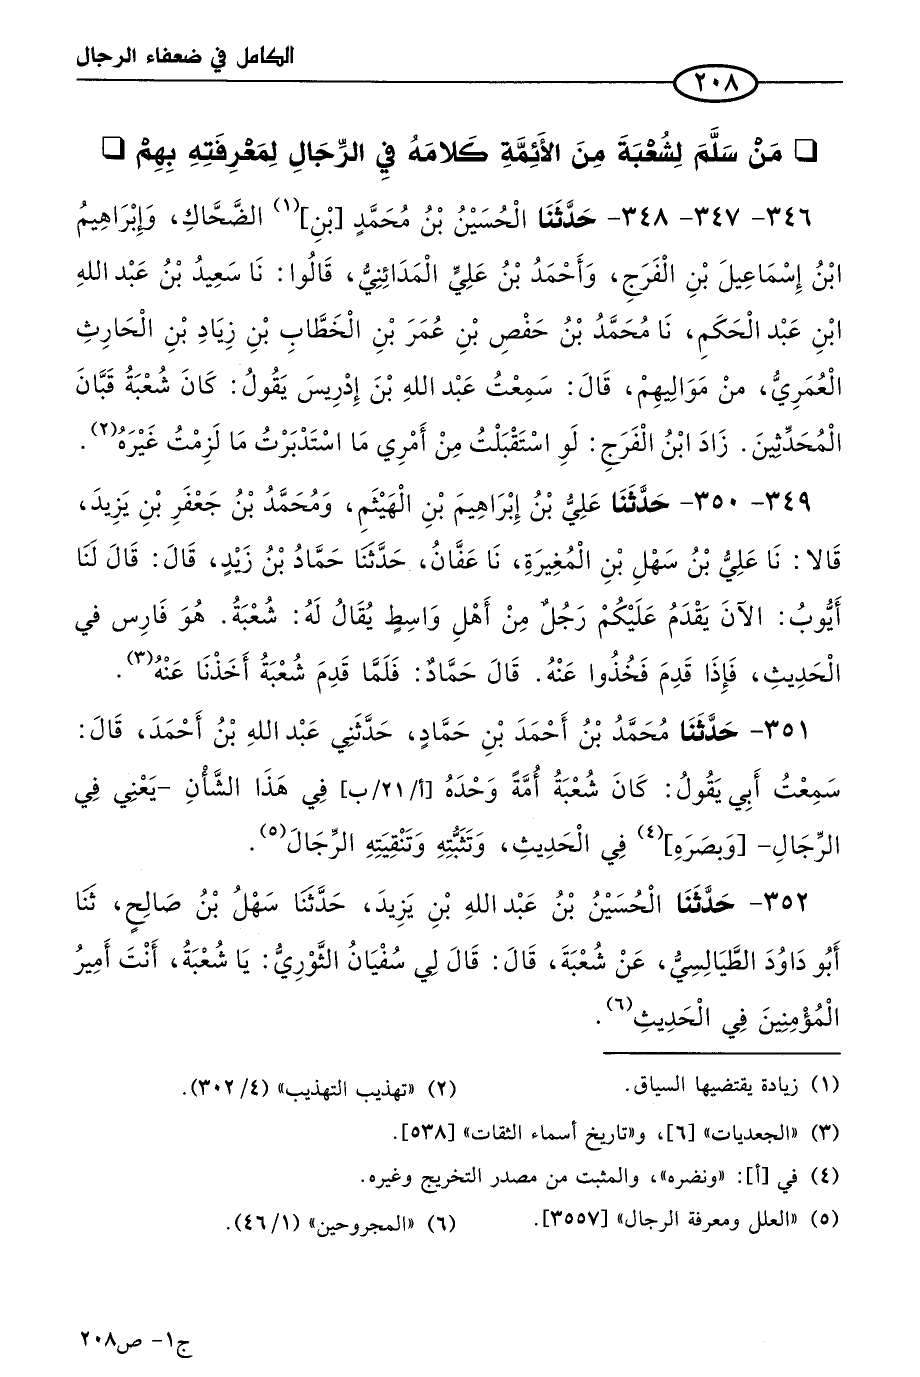 الكامل في ضعفاء الرجال
٢٠٨
❑ مَنْ سَلَّمَ لِشُعْبَةَ مِنَ الأَئِمَّةِ كَلامَهُ فِي الرِّجَالِ لِمَعْرِفَتِهِ بِهِمْ ❑
٣٤٦- ٣٤٧- ٣٤٨- حَدَّثَنَا الْحُسَيْنُ بْنُ مُحَمَّدٍ [بْنِ](١) الضَّحَّاكِ، وَإِبْرَاهِيمُ
ابْنُ إِسْمَاعِيلَ بْنِ الْفَرَجِ، وَأَحْمَدُ بْنُ عَلِيٍّ الْمَدَائِنِيُّ، قَالُوا: نَا سَعِيدُ بْنُ عَبْد اللهِ
ابْنِ عَبْد الْحَكَمِ، نَا مُحَمَّدُ بْنُ حَفْصِ بْنِ عُمَرَ بْنِ الْخَطَّابِ بْنِ زِيَادِ بْنِ الْحَارِثِ
الْعُمَرِيُّ، منْ مَوَالِيهِمْ، قَالَ: سَمِعْتُ عَبْد اللهِ بْنَ إِدْرِيسَ يَقُولُ: كَانَ شُعْبَةُ قَبَّانَ
الْمُحَدِّثِينَ. زَادَ ابْنُ الْفَرَجِ: لَو اسْتَقْبَلْتُ مِنْ أَمْرِي مَا اسْتَدْبَرْتُ مَا لَزِمْتُ غَيْرَهُ(٢).
٣٤٩- ٣٥٠- حَدَّثَنَا عَلِيُّ بْنُ إِبْرَاهِيمَ بْنِ الْهَيْثَمِ، وَمُحَمَّدُ بْنُ جَعْفَرِ بْنِ يَزِيدَ،
قَالا: نَا عَلِيُّ بْنُ سَهْلِ بْنِ الْمُغِيرَةِ، نَا عَفَّانُ، حَدَّثَنَا حَمَّادُ بْنُ زَيْدٍ، قَالَ: قَالَ لَنَا
أَيُّوبُ: الآنَ يَقْدَمُ عَلَيْكُمْ رَجُلٌ مِنْ أَهْلِ وَاسِطٍ يُقَالُ لَهُ: شُعْبَةُ. هُوَ فَارِس في
الْحَدِيثِ، فَإِذَا قَدِمَ فَخُذُوا عَنْهُ. قَالَ حَمَّادٌ: فَلَمَّا قَدِمَ شُعْبَةُ أَخَذْنَا عَنْهُ(٣).
٣٥١- حَدَّثَنَا مُحَمَّدُ بْنُ أَحْمَدَ بْنِ حَمَّادٍ، حَدَّثَنِي عَبْد اللهِ بْنُ أَحْمَدَ، قَالَ:
سَمِعْتُ أَبِي يَقُولُ: كَانَ شُعْبَةُ أُمَّةً وَحْدَهُ [أ/٢١/ب] فِي هَذَا الشَّأْنِ -يَعْنِي فِي
الرِّجَالِ- [وَبصَرَهِ](٤) فِي الْحَدِيثِ، وَتَثَبُّتِهِ وَتَنْقِيَتِهِ الرِّجَالَ(٥).
٣٥٢- حَدَّثَنَا الْحُسَيْنُ بْنُ عَبْد اللهِ بْنِ يَزِيدَ، حَدَّثَنَا سَهْلُ بْنُ صَالِحٍ، ثَنَا
أَبُو دَاوُدَ الطَّيَالِسِيُّ، عَنْ شُعْبَةَ، قَالَ: قَالَ لِي سُفْيَانُ الثَّوْرِيُّ: يَا شُعْبَةُ، أَنْتَ أَمِيرُ
الْمُؤْمِنِينَ فِي الْحَدِيثِ(٦).
(١) زيادة يقتضيها السياق. (٢) «تهذيب التهذيب» (٣٠٢/٤).
(٣) «الجعديات» [٦]، و«تاريخ أسماء الثقات» [٥٣٨].
(٤) في [أ]: «ونضره»، والمثبت من مصدر التخريج وغيره.
(٥) «العلل ومعرفة الرجال» [٣٥٥٧]. (٦) «المجروحين» (٤٦/١).
ج١- ص٢٠٨